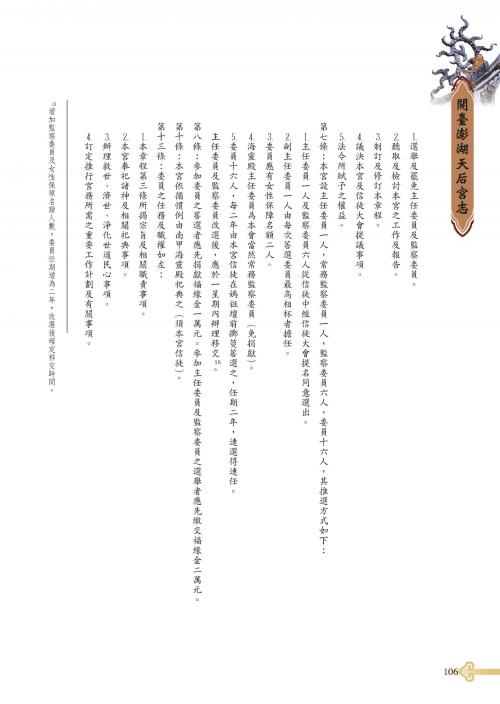 開臺澎湖天后宮志
1.選舉及罷免主任委員及監察委員。
2.聽取及檢討本宮之工作及報告。
3.制訂及修訂本章程。
4.議決本宮及信徒大會提議事項。
5.法令所賦予之權益。
第七條：本宮設主任委員一人，常務監察委員一人，監察委員六人，委員十六人，其推選方式如下：
1.主任委員一人及監察委員六人從信徒中經信徒大會提名同意選出。
2.副主任委員一人由每次筶選委員最高相杯者擔任。
3.委員應有女性保障名額二人。
4.海靈殿主任委員為本會當然常務監察委員（免捐獻）。
5.委員十六人，每二年由本宮信徒在媽祖壇前擲筊筶選之，任期二年，連選得連任。
主任委員及監察委員改選後，應於一星期內辦理移交18。
第八條：參加委員之筶選者應先捐獻福緣金一萬元。參加主任委員及監察委員之選舉者應先繳交福緣金二萬元。
第十條：本宮依循慣例由南甲海靈殿祀典之（須本宮信徒）。
第十三條：委員之任務及職權如左：
1.本章程第三條所揭宗旨及相關職責事項。
2.本宮奉祀諸神及相關祀典事項。
3.辦理救世、濟世、淨化世道民心事項。
4.訂定推行宮務所需之重要工作計劃及有關事項。
18增加監察委員及女性保障名額人數，委員任期增為二年，改選後確定移交時間。
106